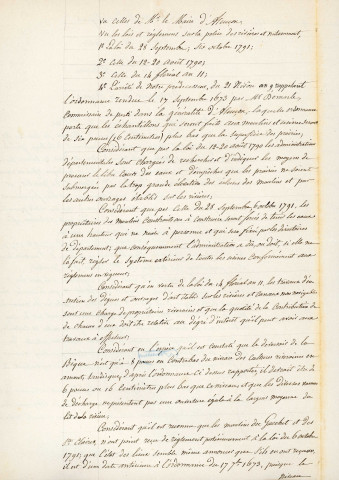 Vu celles de Mr le Maire d'Alençon,
Vu les lois et règlemens sur la police des rivières et notamment,
1° la loi du 28 Septembre, six octobre 1791;
2° Celle du 12-20 août 1790;
3° Celle du 14 floréal an 11;
4° L'arrêté de notre prédécesseur, du 21 Nivôse an 9 rappelant
l'ordonnance rendue le 17 Septembre 1673 par Mr
Commissaire dans la généralité d'Alençon, laquelle ordonnance
porte que les échantillons qui seront faits aux moulins et
de six pouces (16 Centimètres) plus bas que la superficie des prairies,
Considérant que par la loi du 12-20 août 1790 les administrations
départementales sont chargées de rechercher et d'indiquer les moyens de
procurer le libre cours des eaux et d'empêcher que les prairies ne soient
submergées par la trop grande élévation des écluses des moulins et par
les autres ouvrages établis sur les rivières;
Considérant que par celle du 28 Septembre, 6 octobre 1791, les
propriétaires des moulins Construits ou à Construire sont forcés de tenir les eaux
à une hauteur qui ne nuise à personne et qui sera fixée par les directoires
de département; que conséquemment l'administration a dû, ou doit, si elle ne
l'a fait régler le système extérieur de toutes les usines conformément aux
règlemens en vigueur;
Considérant qu'en vertu de la loi du 14 floréal an 11, les travaux d'en-
tretien des digues et ouvrages d'art établis sur les rivières et canaux non navigables
sont une charge des propriétaires riverains et que la quotité de la Contribution
de chacun d'eux doit être relative au degré d'intérêt qu'il peut avoir aux
travaux à effectuer;
Considérant en l'espèce qu'il est constaté que le déversoir de la
n'est qu'à 8 pouces en Contrebas du niveau des Cultures riveraines en
amont, tandis que, d'après l'ordonnance ci dessus rapportée, il devrait être de
6 pouces ou 16 Centimètres plus bas que ce niveau et que les différens vannes
de décharge représentent pas une ouverture égale à la largeur moyenne du
lit de la rivière;
Considérant qu'il est reconnu que les moulins du Guichet et des
Stes Claires, n'ont point reçu de règlement postérieurement à la loi du 6 octobre
1791; que l'état des lieux semble même annoncer que s'ils en ont reçu un,
il est d'une date antérieure à l'ordonnance du 17 7bre 1673, puisque le
niveau